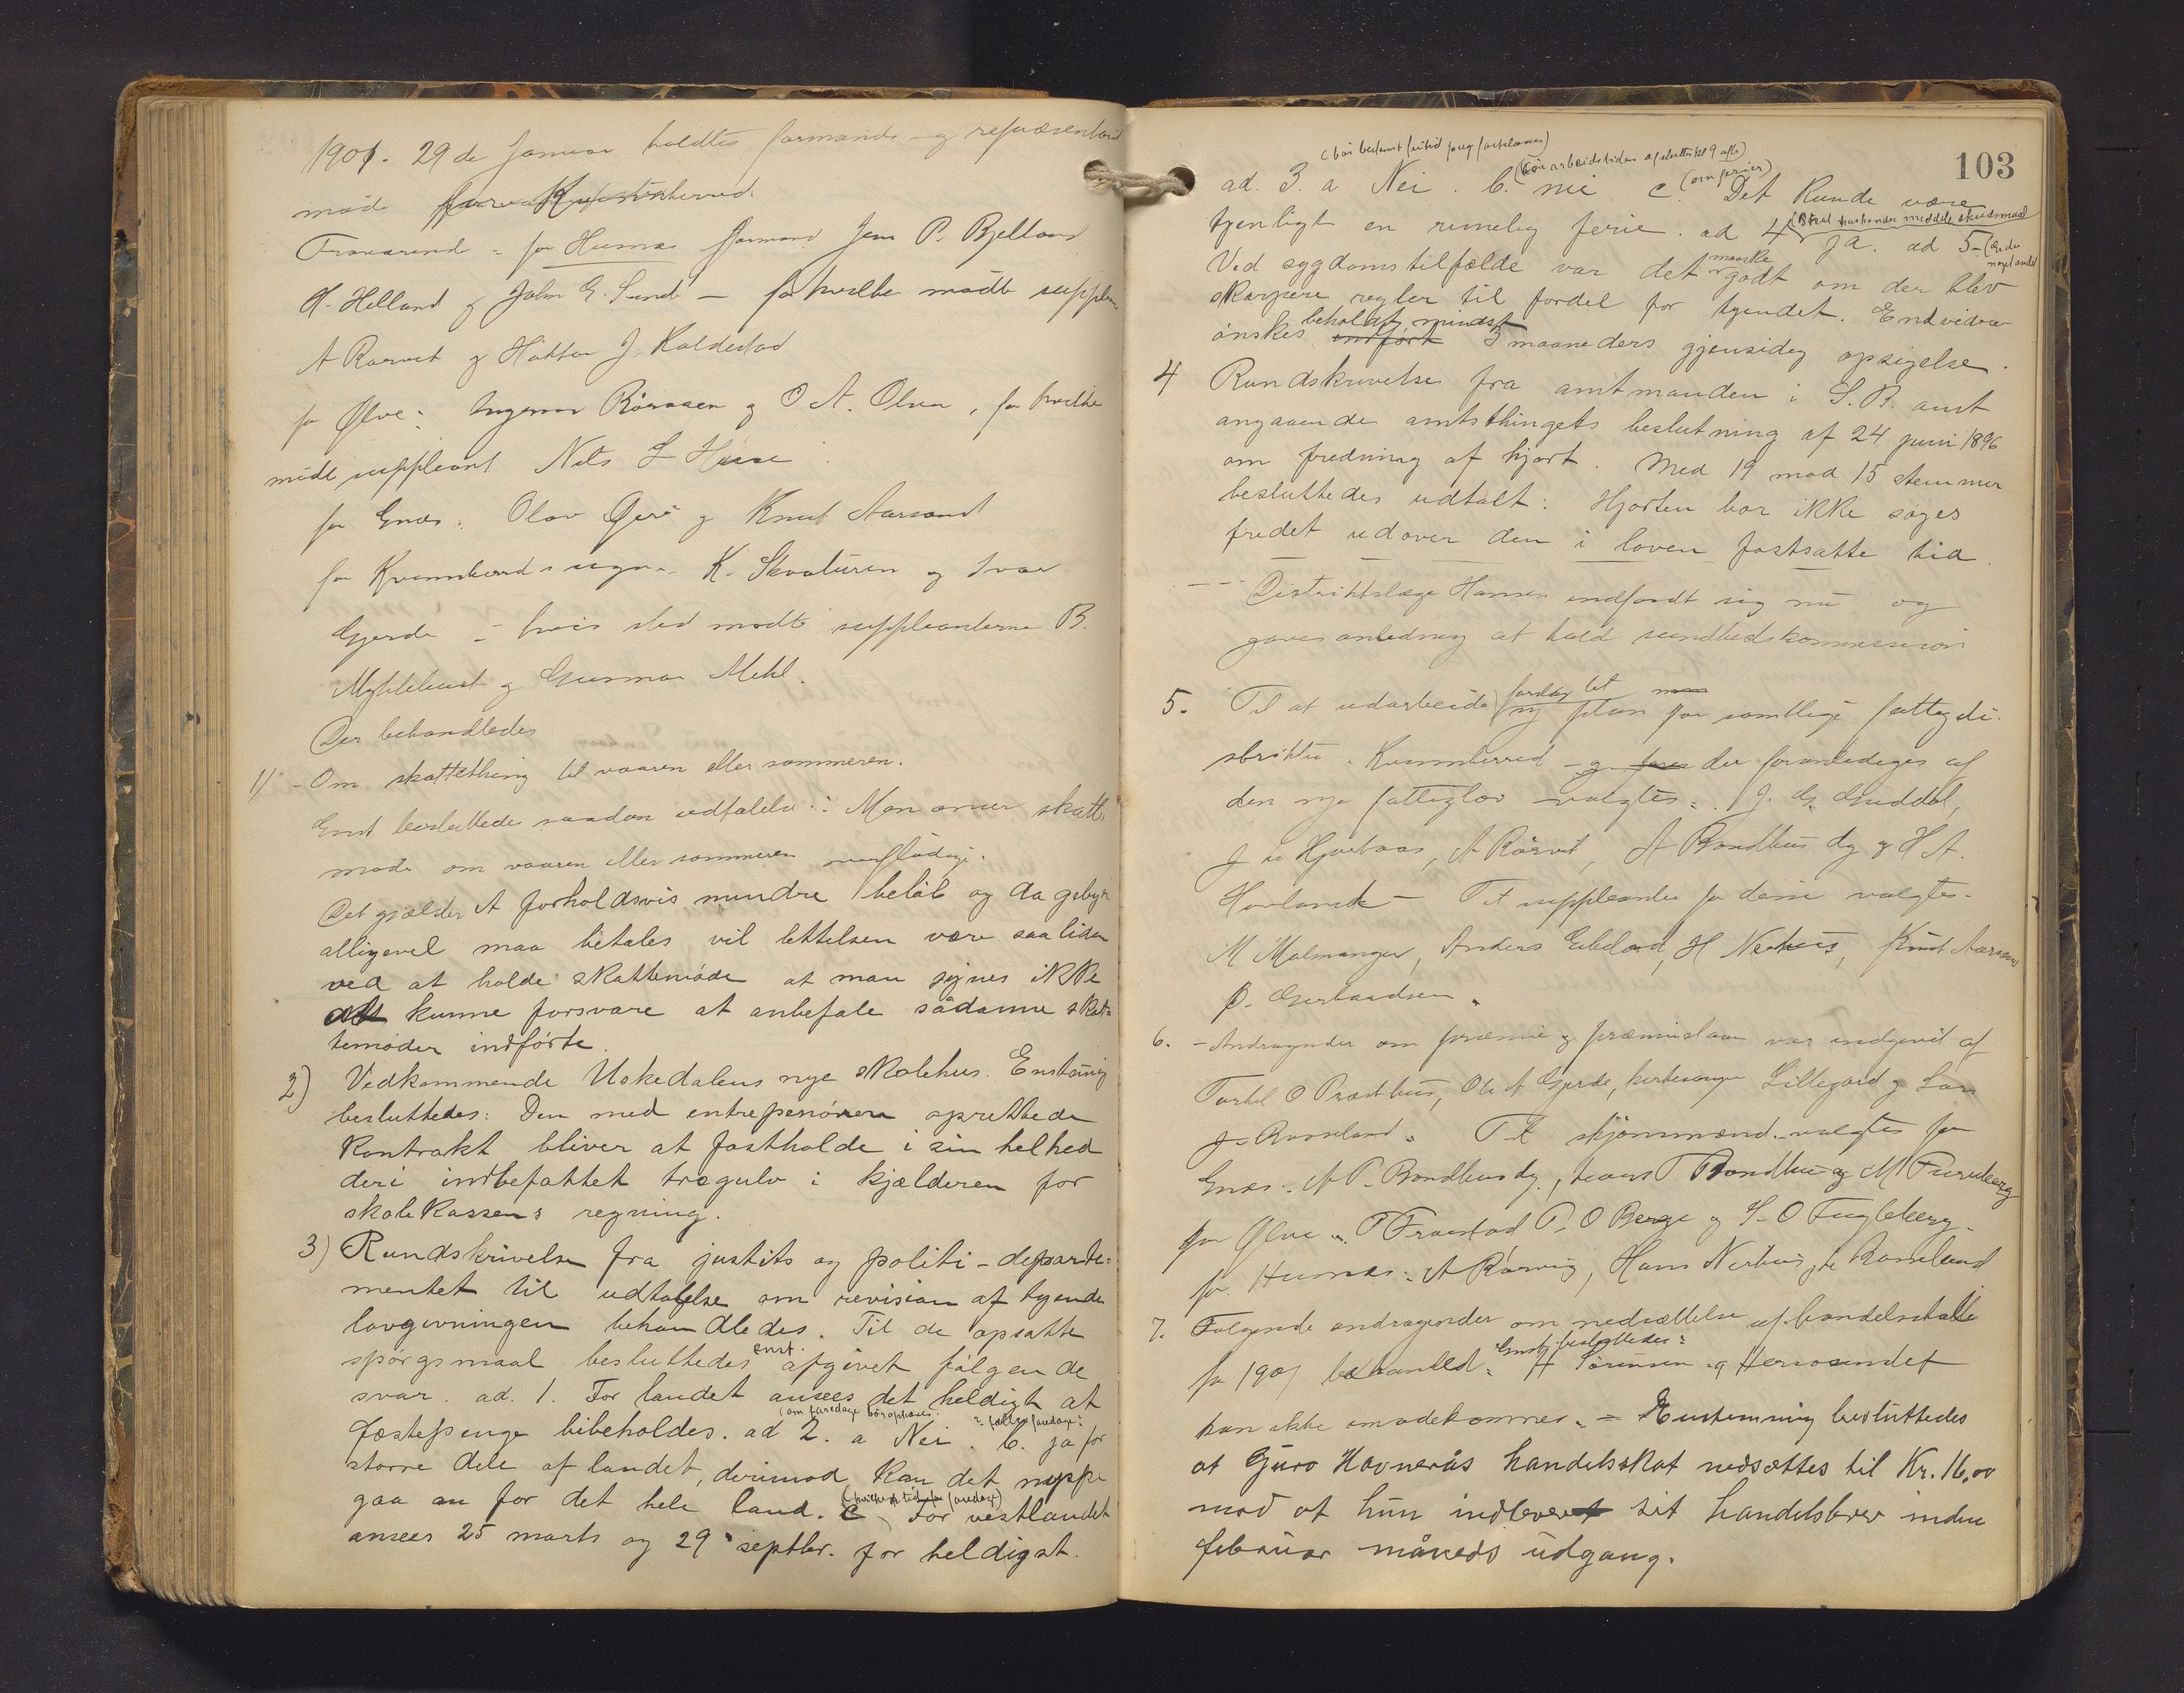 1901. 29de Januar holdtes formands og repræsentant
møde for Kvinnherred.
Fraværend = for Husnæs formand Jens P. Bjelland
H. Helland og John E. Sund – for hvilke mødte supplean
A Rørvik og Halton J. Kaldestad
for Ølve: Ingemar Røraaen og O A. Olsen, for hvilke
mødte suppleant Nils L Huse
for Enæs: Olav Øyre og Knut Aarsand
for Kvinnherreds sogn. K. Skaaluren og Ivar
Gjerde = hvis sted mødte suppleanterne B.
Myklebust og Gunnar Mehl.
Der behandledes
1) - Om skattething til vaaren eller sommeren.
Enst besluttedes saadan udtalelse: Man anser skatte
møde om vaaren eller sommeren overflødige.
Det gjælder et forholdsvis mindre beløb og da gebyr
alligevel maa betales vil lettelsen være saa liden
ved at holde skattemøde at man synes ikke
at kunne forsvare at anbefale sådanne skat=
temøder indførte.
2) Vedkommende Uskedalens nye skolehus. Enstemig
besluttedes: Den med entrepenøren oprettede
kontrakt bliver at fastholde i sin helhed
deri indbefattet trægulv i kjælderen for
skolekassens regning.
3) Rundskrivelse fra justits og politi-departe=
mentet til udtalelse om revision af tyende
lovgivningen behandledes. Til de opsatte
spørgsmaal besluttedes enst. afgivet følgende
svar. ad. 1. For landet ansees det heldigt at
fæstepenge bibeholdes. ad 2. a (om faredage bør ophæves) Nei. b. (? fælles faredage:) ja for
større dele af landet, derimod kan det neppe
gaa an for det hele land. c (hvilken tid for faredag) For vestlandet
ansees 25 marts og 29 septbr. for heldigst.
103
ad. 3. a (bør bestemt fritid foreg fastslaaes) Nei. b. (bør arbeidstiden afsluttes kl 9 aft) nei c. (om ferier) Det kunde være
tjenligt en rimelig ferie. ad 4 (Skal husbonder meddele skudsmaal) ja. ad 5- (Er der noget andet
Ved sygdomstilfælde var det maaske godt om der blev
skarpere regler til fordel for tyendet. Endvidere
ønskes indført beholdt, mindst 3 maaneders gjensidig opsigelse.
4 Rundskrivelse fra amtmanden i S. B. amt
angaaende amtsthingets beslutning af 24 juni 1896
om fredning af hjort. Med 19 mod 15 stemmer
besluttedes udtalt: Hjorten bør ikke søges
fredet udover den i loven fastsatte tid.
--- Distriktslæge Hansen indfandt sig nu og
gaves anledning at hold sundhedskommission
5. Til at udarbeide forslag til ny plan for samtlige fattigdi-
strikter i Kvinnherred – der foranlediges af
den nye fattiglov – valgtes: J. G. Guddal,
J H Hjortaas, A Rørvik, A Bondhus dy og H A.
Hovland – Til suppleanter for disse valgtes.
M Malmanger, Anders Eikeland, H Nerhus, Knut Aarsand
P. Gerhardsen.
6. - Andragender om præmie og præmielaan var indgivet af
Torkel O Præsthus, Ole A Gjerde, kirkesanger Lillegaard og Lars
J. Røsseland. Til skjønsmænd valgtes for
Enæs: A P. Bondhus dy., Hans T Bondhus og M Fureberg
for Ølve: P Fraestad P. O Berge og S. O Fugleberg.
for Husnæs: A Rørvig, Hans Nerhus, H Røsseland
7. Følgende andragender om nedsættelse af handelsskatte
for 1901 behandled: Enst. besluttedes: H Sørensen og Herøsundet
kan ikke imødekommes. = Enstemmig besluttedes
at Guro Hovnerås handelsskat nedsættes til Kr. 16,00
mod at hun indleverer sit handelsbrev inden
februar måneds udgang.